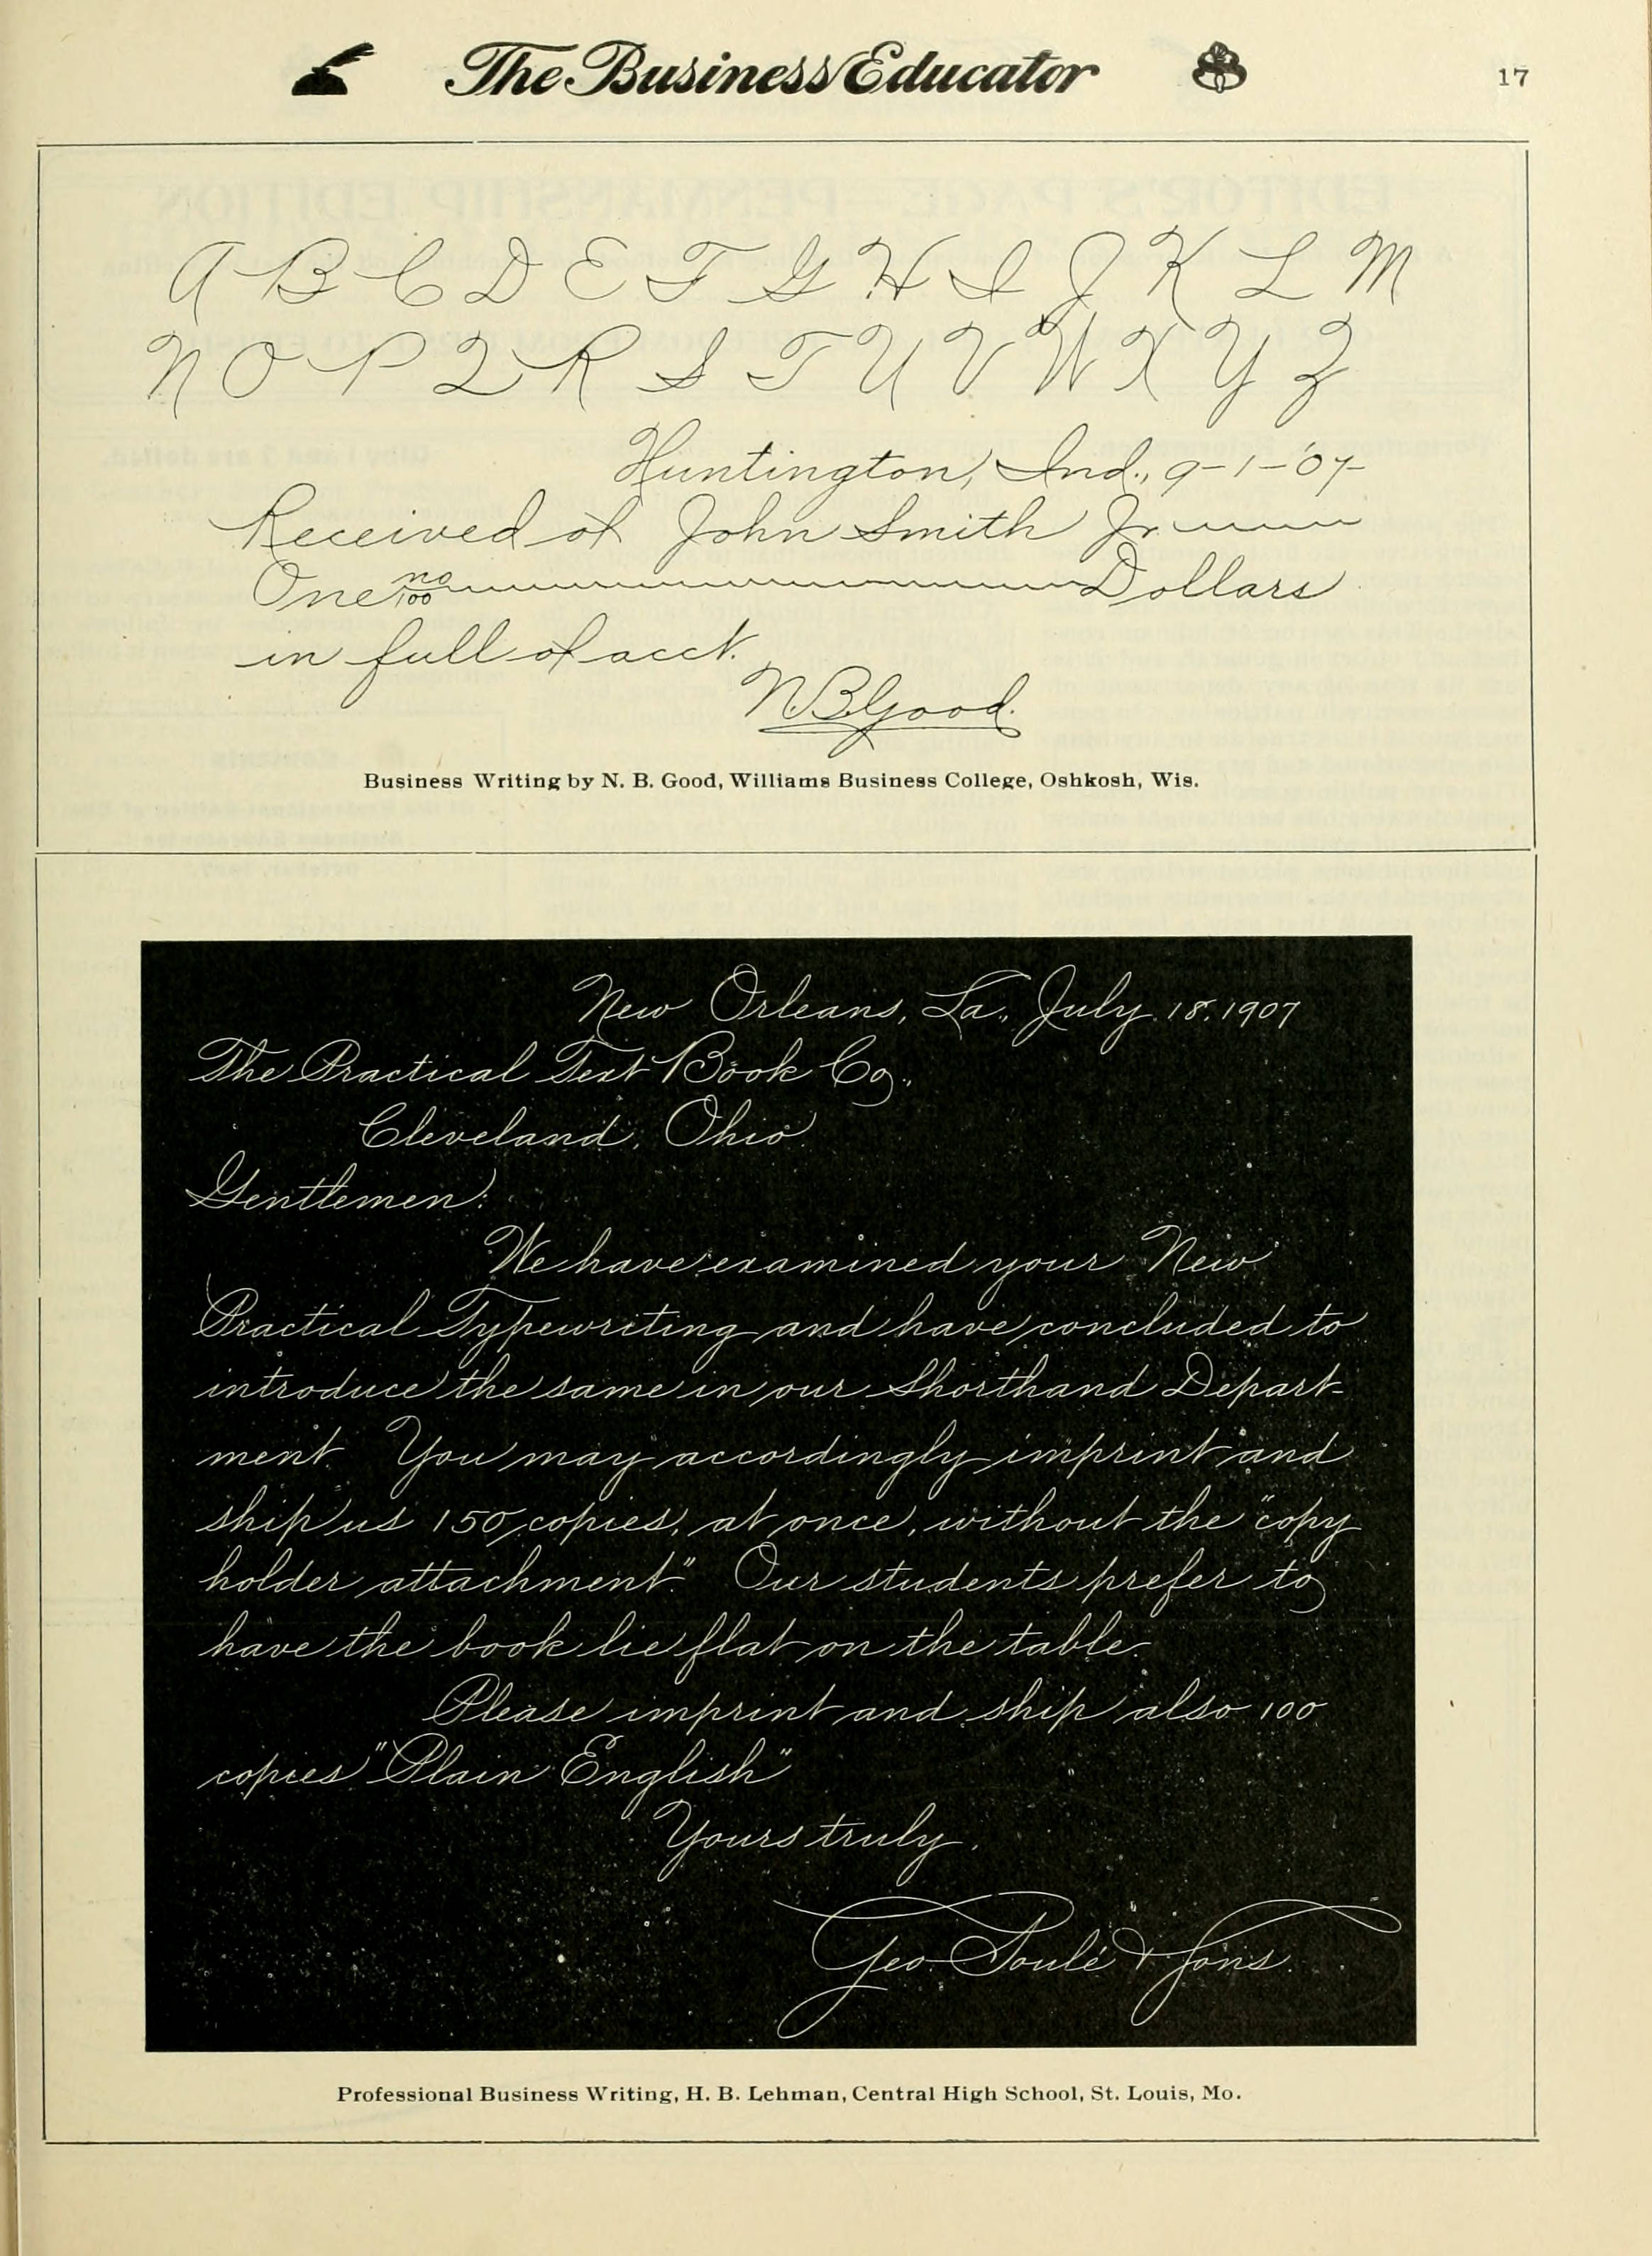 The Business Educator
17
A B C D E F G H I J K L M
N O P Q R S T U V W X Y Z
Huntington, Ind., 9-1-'07
Received of John Smith Jr
One no/100 Dollars
in full of acct.
N.B. Good.
Business Writing by N. B. Good, Williams Business College, Oshkosh, Wis.
New Orleans, La., July 18, 1907
The Practical Text Book Co.,
Cleveland, Ohio
Gentlemen:
We have examined your New
Practical Typewriting and have concluded to
introduce the same in our Shorthand Depart-
ment. You may accordingly imprint and
ship us 150 copies, at once, without the "copy
holder attachment." Our students prefer to
have the book lie flat on the table.
Please imprint and ship also 100
copies "Plain English"
Yours truly,
Geo. Soulé & Sons.
Professional Business Writing, H. B. Lehman, Central High School, St. Louis, Mo.